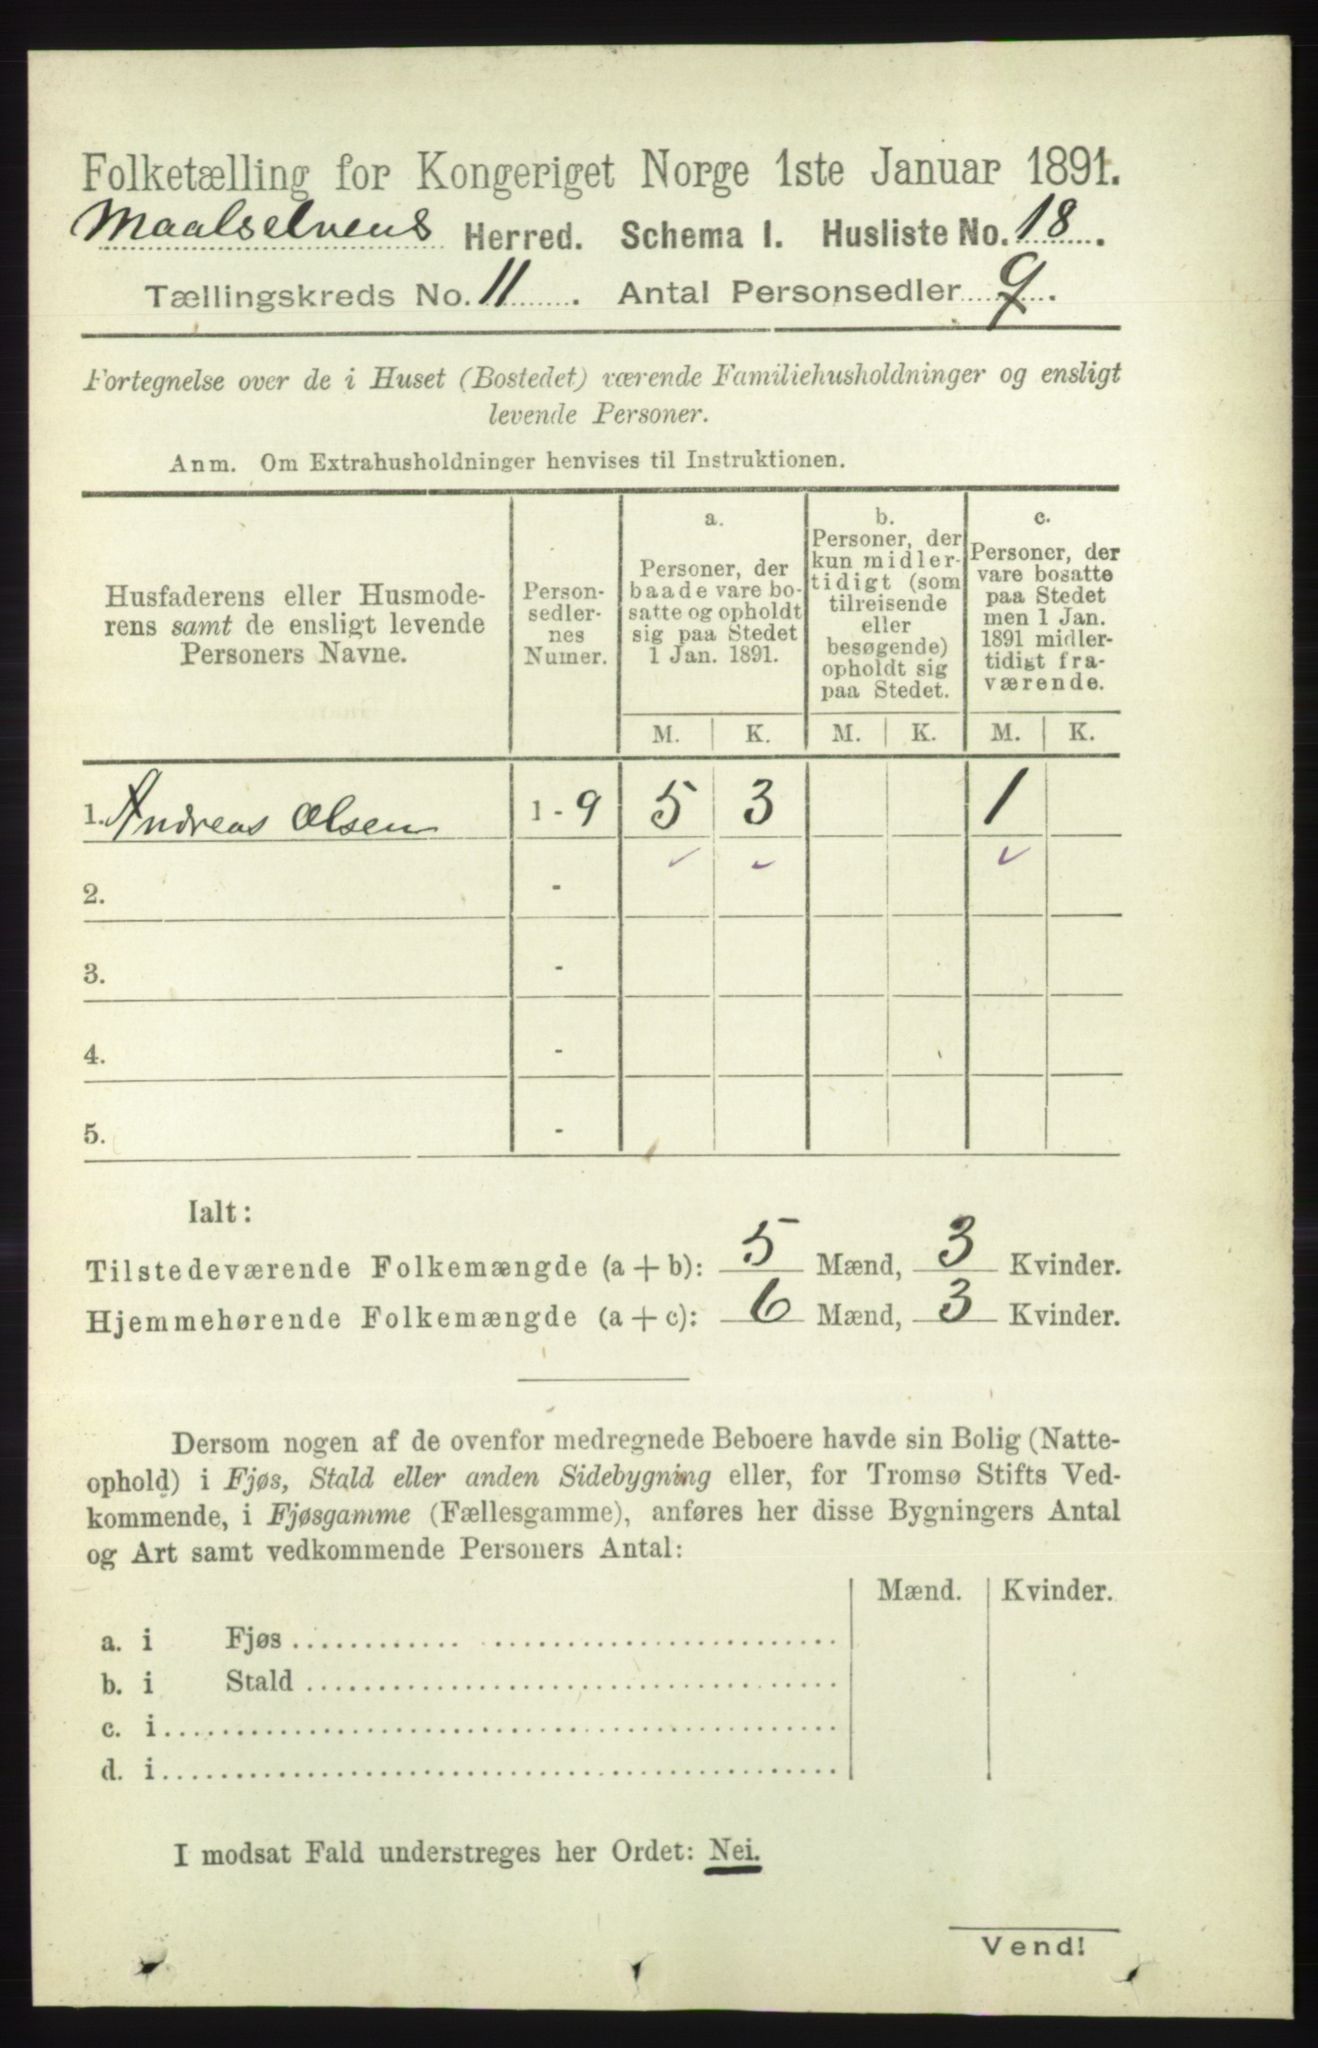 Folketælling for Kongeriget Norge 1ste Januar 1891.
Maalselvens Herred. Schema I. Husliste No. 18.
Tællingskreds No. 11. Antal Personsedler 9.
Fortegnelse over de i Huset (Bostedet) værende Familiehusholdninger og ensligt
levende Personer.
Anm. Om Extrahusholdninger henvises til Instruktionen.
Husfaderens eller Husmode-
rens samt de ensligt levende
Personers Navne.
Person-
sedler-
nes
Numer.
a.
Personer, der
baade vare bo-
satte og opholdt
sig paa Stedet
1 Jan. 1891.
b.
Personer, der
kun midler-
tidigt (som
tilreisende
eller
besøgende)
opholdt sig
paa Stedet.
c.
Personer, der
vare bosatte
paa Stedet
men 1 Jan.
1891 midler-
tidigt fra-
værende.
M. K. M. K. M. K.
1. Andreas Olsen 1 - 9 5 3 1
2. -
3. -
4. -
5. -
Ialt:
Tilstedeværende Folkemængde (a + b): 5 Mænd, 3 Kvinder.
Hjemmehørende Folkemængde (a + c): 6 Mænd, 3 Kvinder.
Dersom nogen af de ovenfor medregnede Beboere havde sin Bolig (Natte-
ophold) i Fjøs, Stald eller anden Sidebygning eller, for Tromsø Stifts Ved-
kommende, i Fjøsgamme (Fællesgamme), anføres her disse Bygningers Antal
og Art samt vedkommende Personers Antal:
Mænd. Kvinder.
a. i Fjøs
b. i Stald
c. i
d. i
I modsat Fald understreges her Ordet: Nei.
Vend!